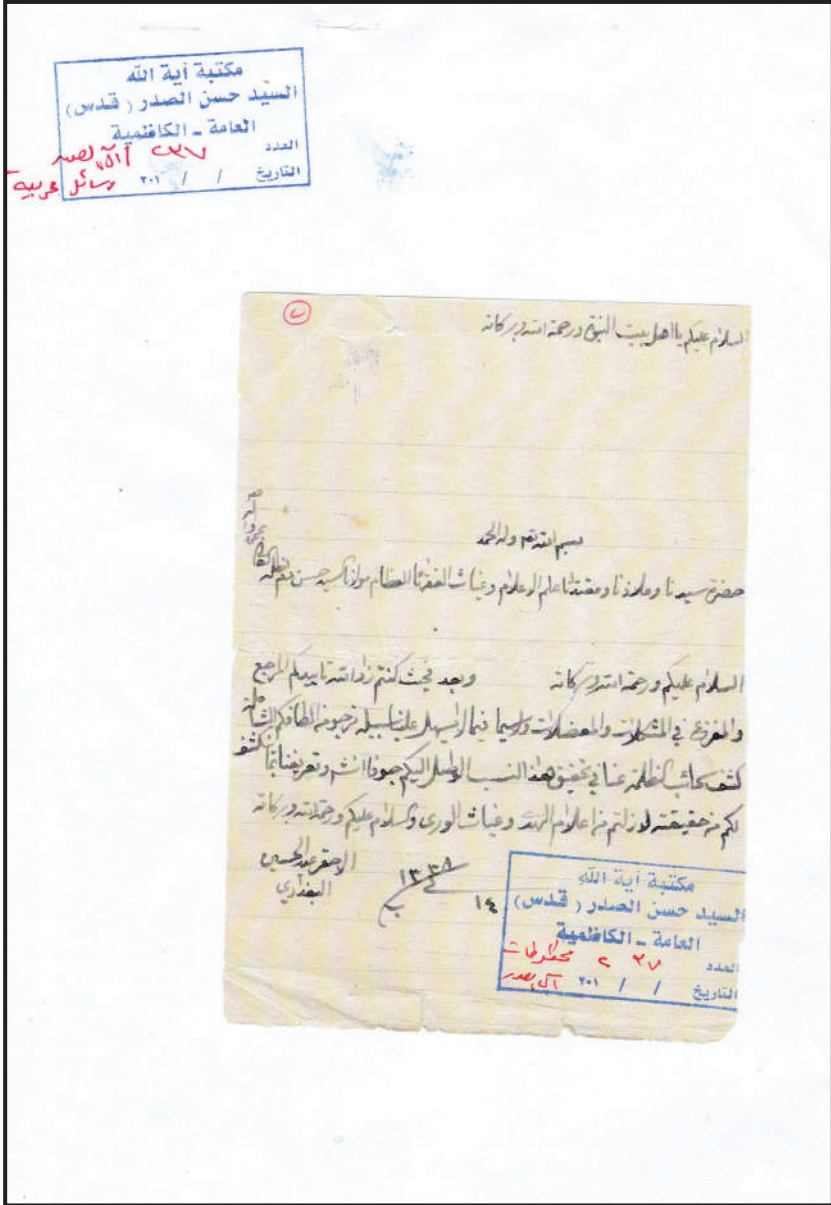 مكتبة آية الله
السيد حسن الصدر ( قدس )
العامة - الكاظمية
العدد ٢٣٧ آل الصدر
التاريخ / / ٢٠١ رسائل عربية
السلام عليكم يا اهل بيت النبوة ورحمة الله وبركاته
بسم الله تع وله الحمد
حضرة سيدنا وملاذنا ومقتدانا علم الاعلام وغياث الفقراء العظام مولانا السيد حسن
السلام عليكم ورحمة الله وبركاته وبعد فحيث كنتم زاد الله تاييدكم المرجع
والمفزع في المشكلات والمعضلات ولاسيما فيما لا يسهل علينا سبيله نرجو من الطافكم الشاملة
كشف سحائب الظلمة عنا في تحقيق هذا النسب الواصل اليكم وتعريفنا بما ينكشف
لكم من حقيقته لا زلتم من اعلام الهدى وغياث الورى والسلام عليكم ورحمة الله وبركاته
الاحقر عبد الحسين
البغدادي
١٤ ١٣٣٨
مكتبة آية الله
السيد حسن الصدر ( قدس )
العامة - الكاظمية
العدد ٢٣٧ مخطوطات
التاريخ / / ٢٠١ آل الصدر